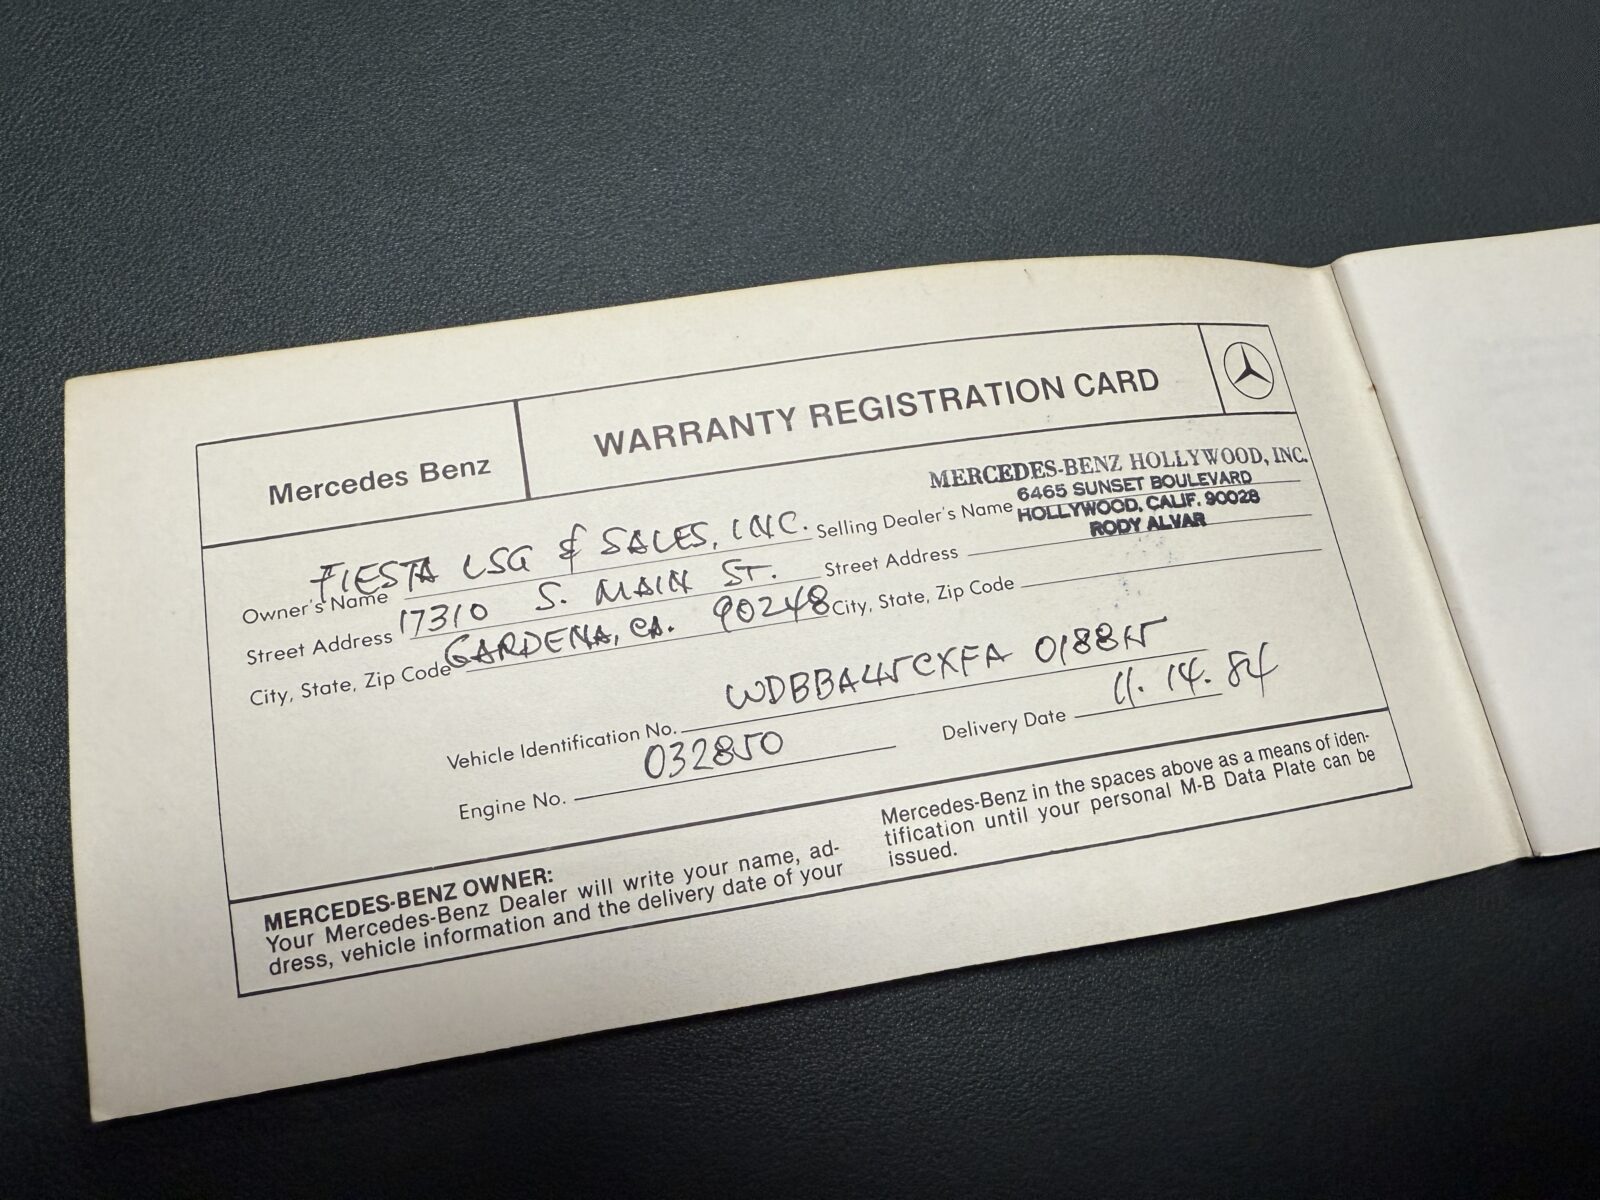 Mercedes Benz
WARRANTY REGISTRATION CARD
Owner's Name FIESTA LSG & SALES, INC.
Street Address 17310 S. MAIN ST.
City, State, Zip Code GARDENA, CA. 90248
MERCEDES-BENZ HOLLYWOOD, INC.
Selling Dealer's Name 6465 SUNSET BOULEVARD
HOLLYWOOD, CALIF. 90028
RODY ALVAR
Street Address
City, State, Zip Code
Vehicle Identification No. WDBBA45CXFA 018815
Engine No. 032850
Delivery Date 11.14.84
MERCEDES-BENZ OWNER:
Your Mercedes-Benz Dealer will write your name, ad-
dress, vehicle information and the delivery date of your
Mercedes-Benz in the spaces above as a means of iden-
tification until your personal M-B Data Plate can be
issued.